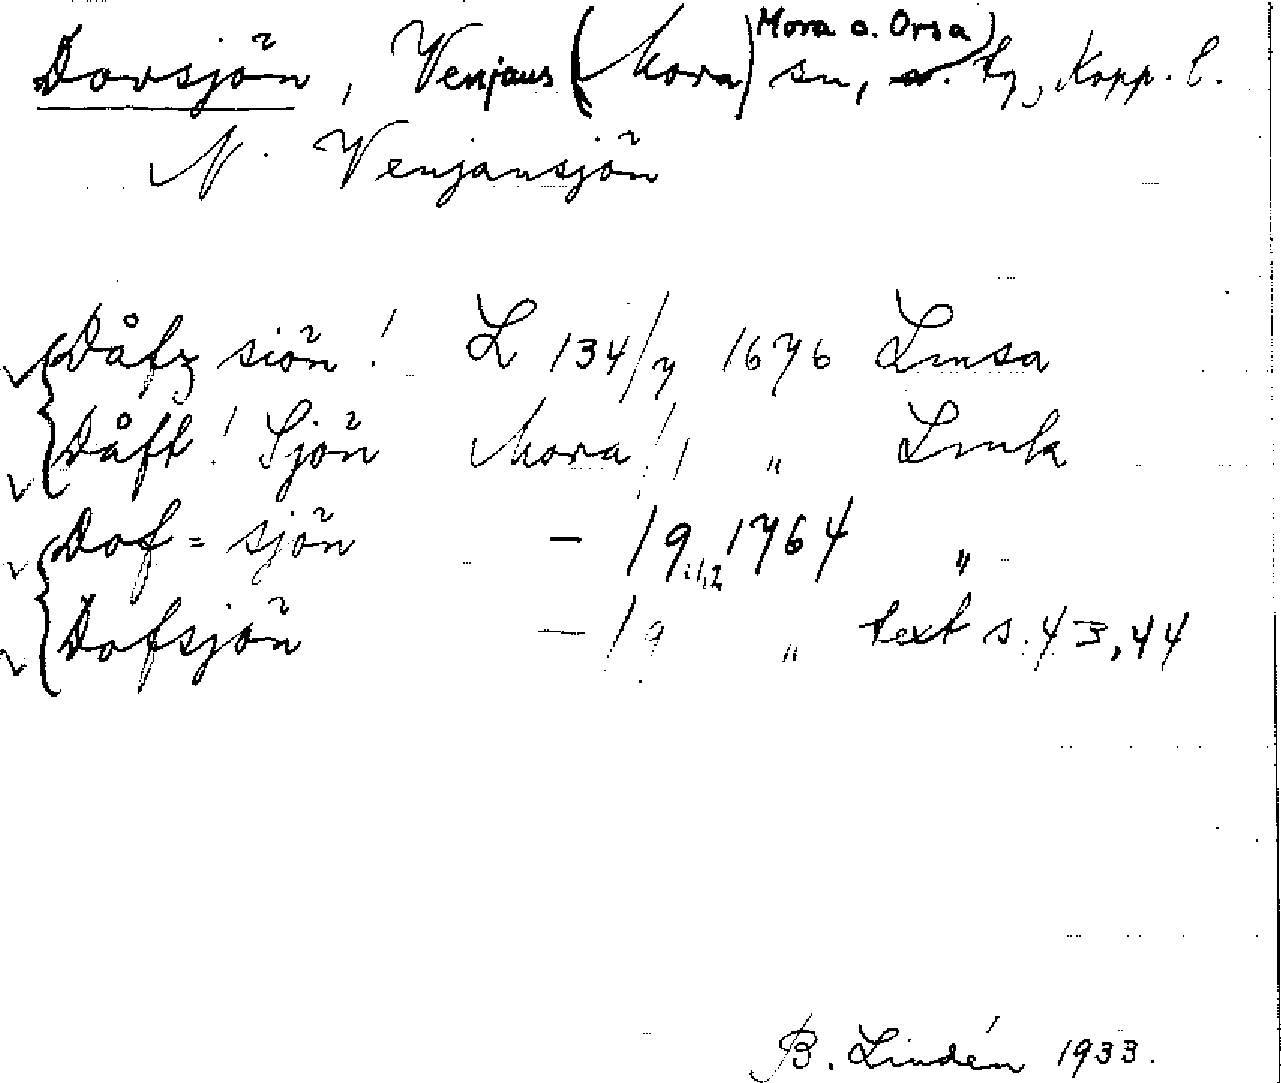 Dovsjön, Venjans (Mora) Mora o. Orsa) sn, tg, Kopp. l.
N. Venjansjön
Dåfz siön! L 134/7 1676 Lmsa
Dåft! Sjön Mora /1 " Lmk
Dof=sjön - /9 1/2 1764 "
Dofsjön - /9 " text s. 43, 44
B. Lindén 1933.